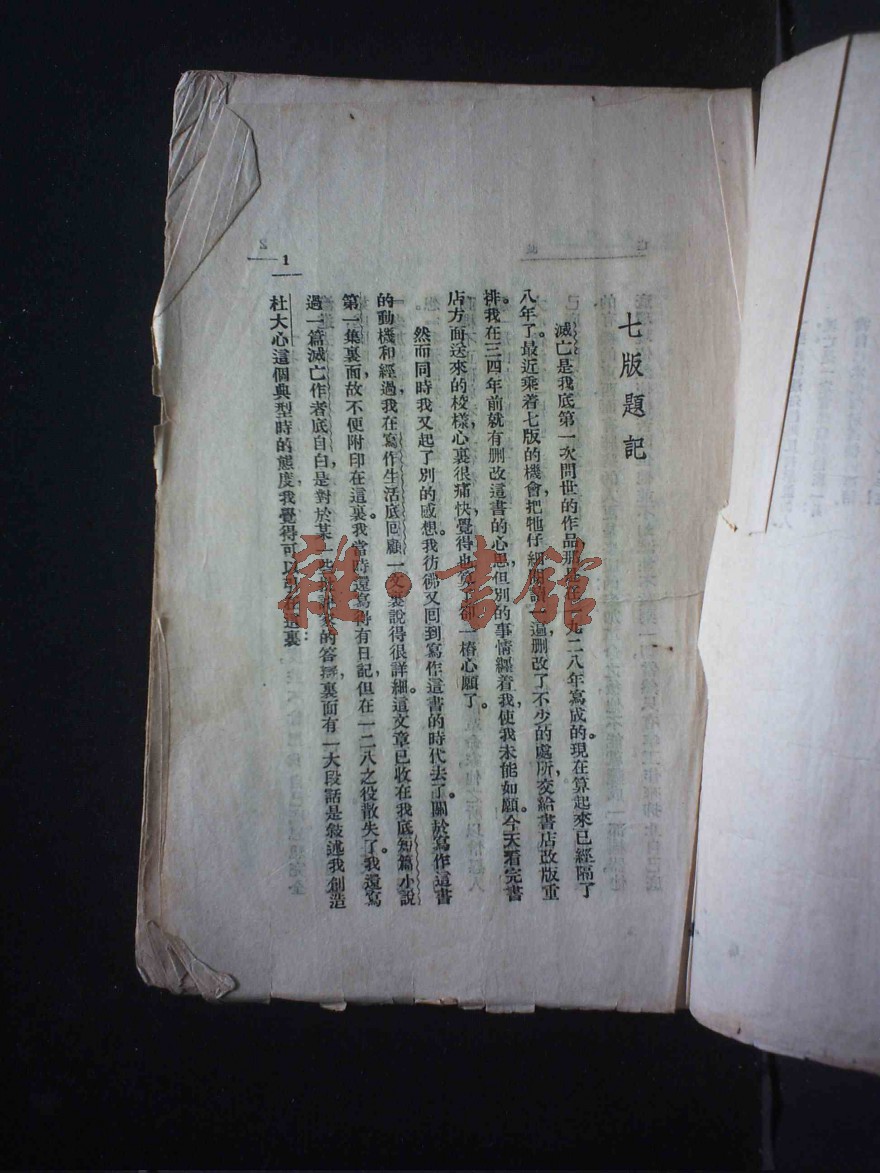 七版題記
滅亡是我底第一次問世的作品那是在一九二八年寫成的。現在算起來已經隔了
八年了。最近乘着七版的機會把牠仔細閱讀一過，删改了不少的處所，交給書店改版重
排。我在三四年前就有删改這書的心思，但別的事情纏着我，使我未能如願。今天看完書
店方面送來的校樣，心裏很痛快，覺得也算了卻一樁心願了。
然而同時我又起了別的感想。我彷彿又回到寫作這書的時代去了。關於寫作這書
的動機和經過，我在寫作生活底回顧一文裏說得很詳細。這文章已收在我底短篇小說
第一集裏面，故不便附印在這裏。我當時還寫得有日記，但在一二八之役散失了。我還寫
過一篇滅亡作者底自白，是對於某一些批評家的答辯，裏面有一大段話是敍述我創造
杜大心這個典型時的態度，我覺得可以引在這裏：
1
雜·書館